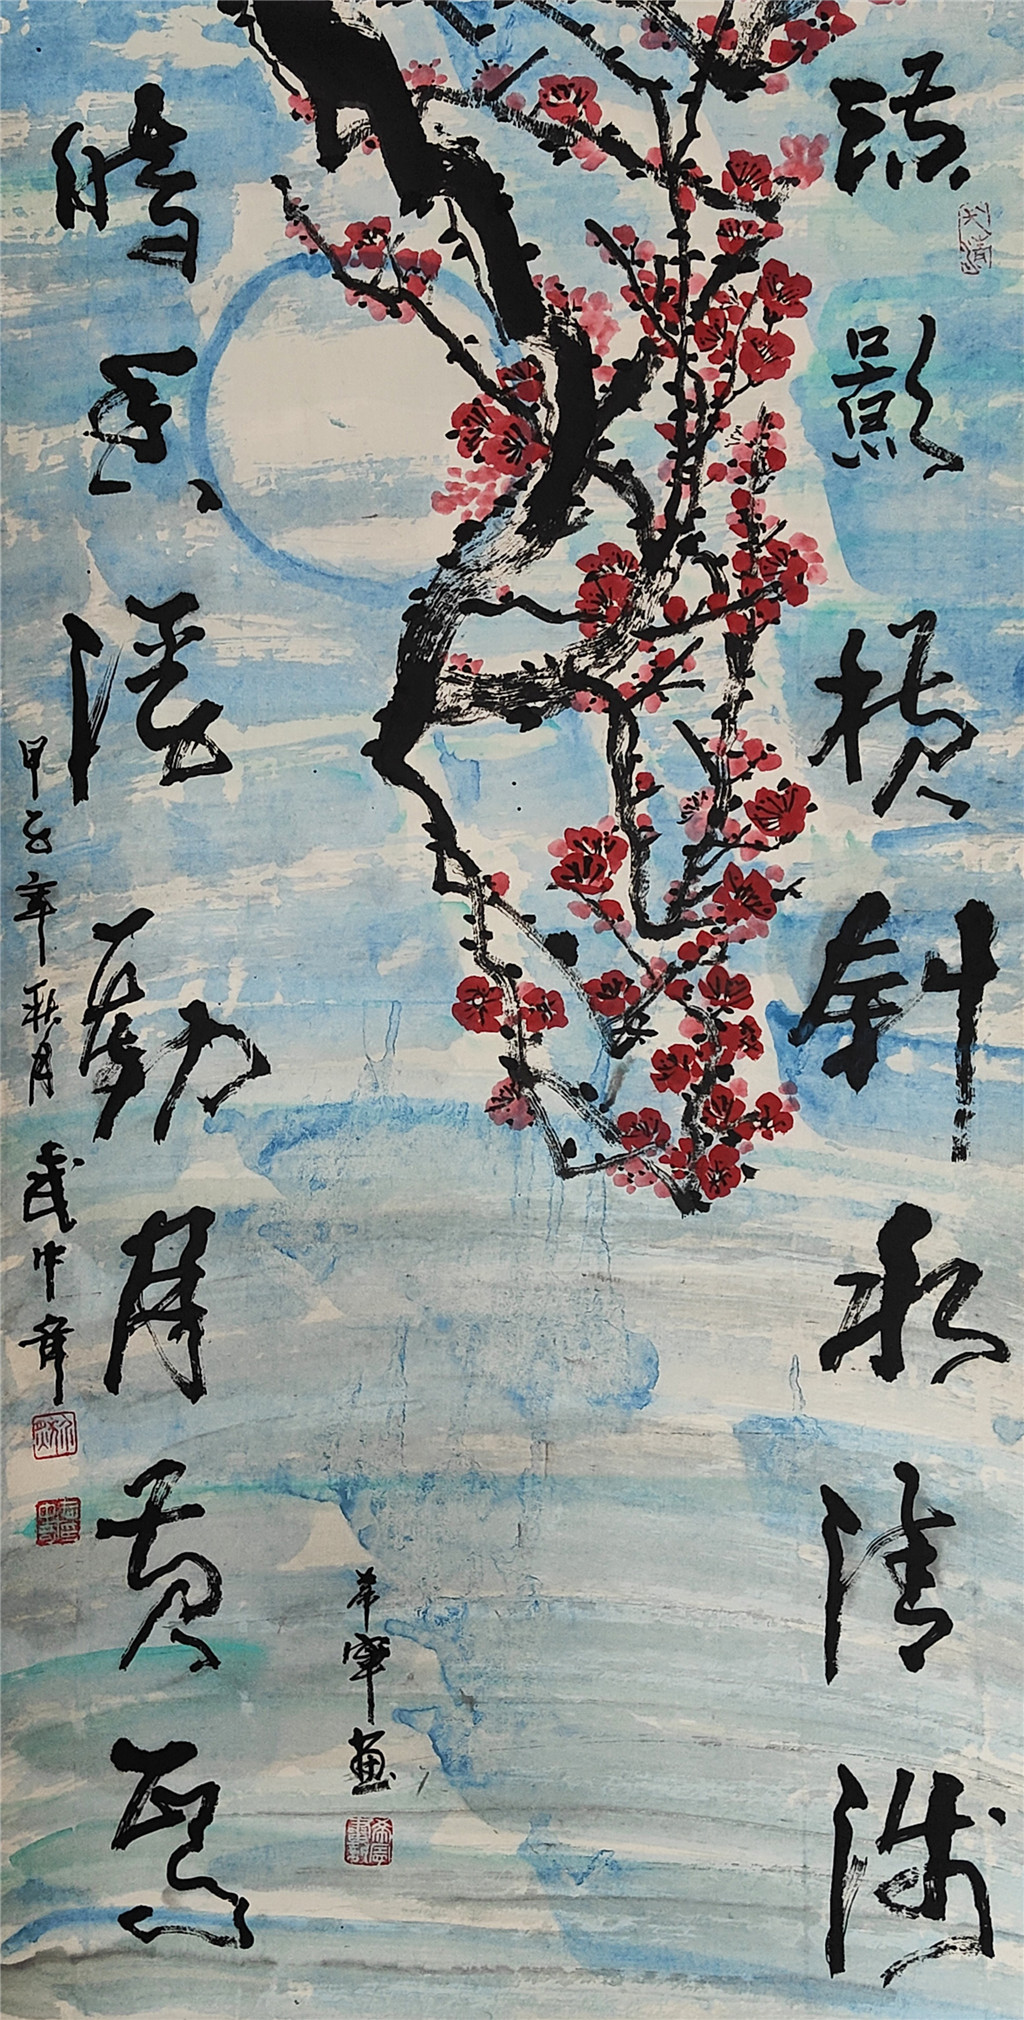 疏影横斜水清浅
暗香浮動月黄昏
甲子年秋月武中奇
希寧画